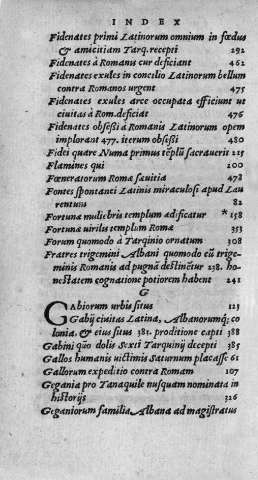 INDEX
Fidenates primi Latinorum omnium in fœdus
& amicitiam Tarq. recepti 292
Fidenates à Romanis cur deficiant 462
Fidenates exules in concilio Latinorum bellum
contra Romanos urgent 475
Fidenates exules arce occupata efficiunt ut
ciuitas à Rom. deficiat 476
Fidenates obseßi à Romanis Latinorum opem
implorant 477. iterum obseßi 480
Fidei quare Numa primus tēplū sacrauerit 215
Flamines qui 200
Fœneratorum Roma sæuitia 478
Fontes spontanei Latinis miraculosi apud Lau
rentum 82
Fortuna muliebris templum ædificatur *158
Fortuna uirilis templum Roma 353
Forum quomodo à Tarquinio ornatum 308
Fratres trigemini Albani quomodo cū trige-
minis Romanis ad pugnā destinētur 238. ho-
nestatem cognatione potiorem habent 241
G
Gabiorum urbis situs 123
Gabij ciuitas Latina, Albanorumq; co
lonia, & eius situs 381. proditione capti 388
Gabini quo dolis Sexti Tarquinij decepti 385
Gallos humanis uictimis Saturnum placasse 61
Gallorum expeditio contra Romam 107
Gegania pro Tanaquile nusquam nominata in
historijs 326
Geganiorum familia Albana ad magistratus